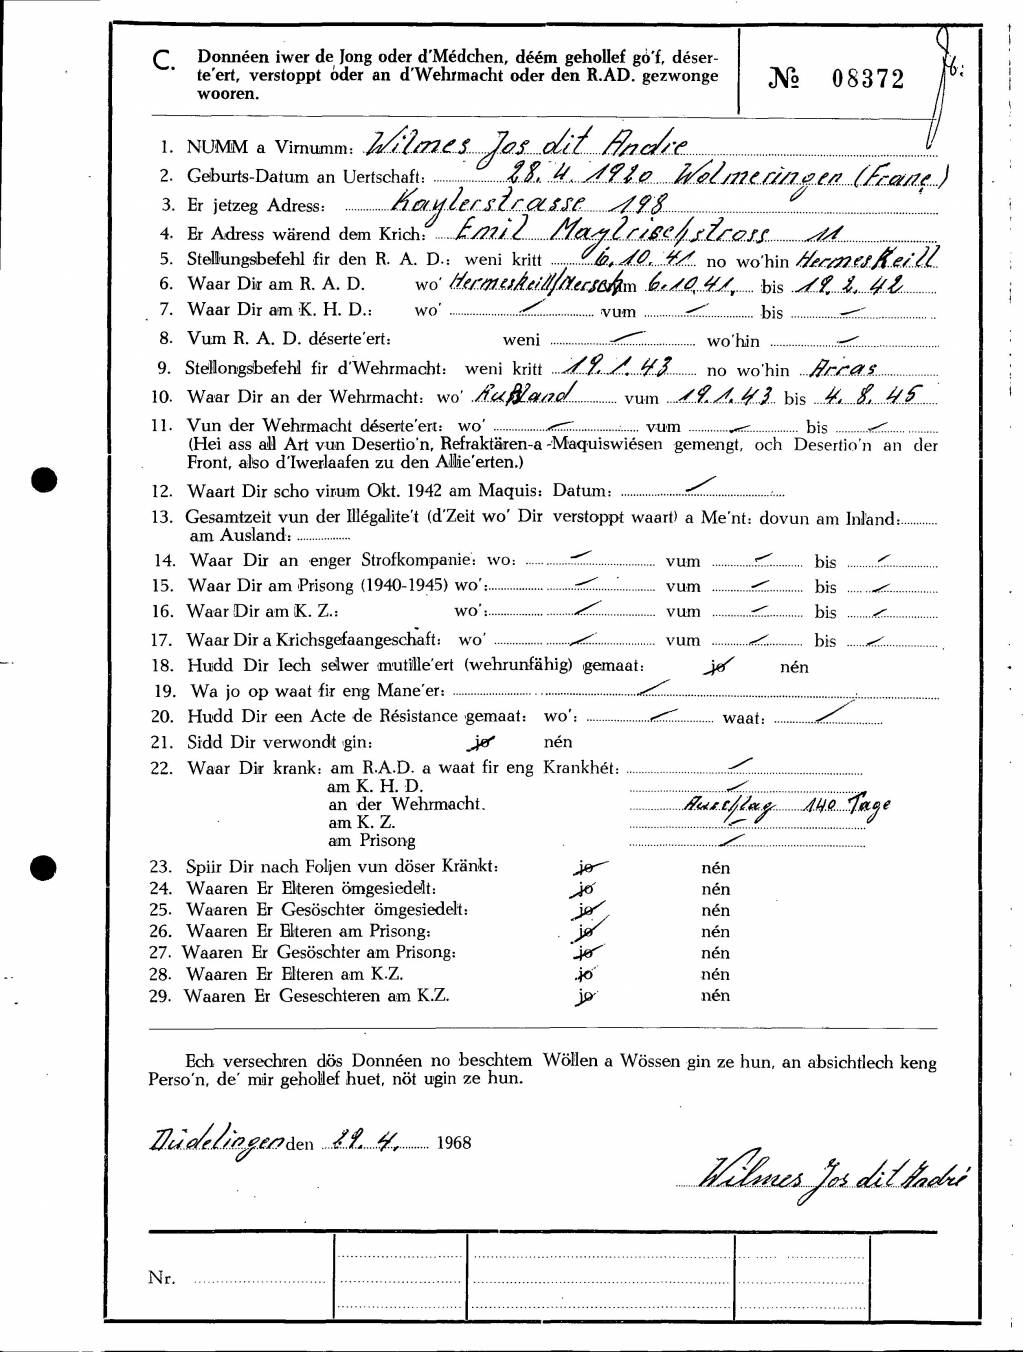 C. Donnéen iwer de Jong oder d'Médchen, déém gehollef gö'f, déser-
te'ert, verstoppt oder an d'Wehrmacht oder den R.AD. gezwonge
wooren.
№ 08372
1. NUMM a Virnumm: Wilmes Jos dit Andre
2. Geburts-Datum an Uertschaft: 28. 4. 1920 Wolmeringen (Franc.)
3. Er jetzeg Adress: Kaylerstrasse 198
4. Er Adress wärend dem Krich: Emil 11
5. Stellungsbefehl fir den R. A. D.: weni kritt 6. 10. 41 no wo'hin Hermeskeill
6. Waar Dir am R. A. D. wo' Hermeskeill/ vum 6.10.41. bis 19. 2. 42
7. Waar Dir am K. H. D.: wo' vum bis
8. Vum R. A. D. déserte'ert: weni wo'hin
9. Stellongsbefehl fir d'Wehrmacht: weni kritt 19. 1. 43 no wo'hin Arras
10. Waar Dir an der Wehrmacht: wo' Rußland vum 19.1.43 bis 4. 8. 45
11. Vun der Wehrmacht déserte'ert: wo' vum bis
(Hei ass all Art vun Desertio'n, Refraktären-a -Maquiswiésen gemengt, och Desertio'n an der
Front, also d'Iwerlaafen zu den Allie'erten.)
12. Waart Dir scho virum Okt. 1942 am Maquis: Datum:
13. Gesamtzeit vun der Illégalite't (d'Zeit wo' Dir verstoppt waart) a Me'nt: dovun am Inland:
am Ausland:
14. Waar Dir an enger Strofkompanie: wo: vum bis
15. Waar Dir am Prisong (1940-1945) wo': vum bis
16. Waar Dir am K. Z.: wo': vum bis
17. Waar Dir a Krichsgefaangeschaft: wo' vum bis
18. Hudd Dir Iech selwer mutille'ert (wehrunfähig) gemaat: jo nén
19. Wa jo op waat fir eng Mane'er:
20. Hudd Dir een Acte de Résistance gemaat: wo': waat:
21. Sidd Dir verwondt gin: jo nén
22. Waar Dir krank: am R.A.D. a waat fir eng Krankhét:
am K. H. D.
an der Wehrmacht. Ausschlag 140 Tage
am K. Z.
am Prisong
23. Spiir Dir nach Foljen vun döser Kränkt: jo nén
24. Waaren Er Elteren ömgesiedelt: jo nén
25. Waaren Er Gesöschter ömgesiedelt: jo nén
26. Waaren Er Elteren am Prisong: jo nén
27. Waaren Er Gesöschter am Prisong: jo nén
28. Waaren Er Elteren am K.Z. jo nén
29. Waaren Er Geseschteren am K.Z. jo nén
Ech versechren dös Donnéen no beschtem Wöllen a Wössen gin ze hun, an absichtlech keng
Perso'n, de' mir gehollef huet, nöt ugin ze hun.
Düdelingen den 29. 4. 1968
Wilmes Jos dit André
Nr.